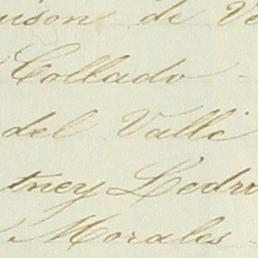 uison de Ve
Collado -
del Valle
tney Ledru
Morales -